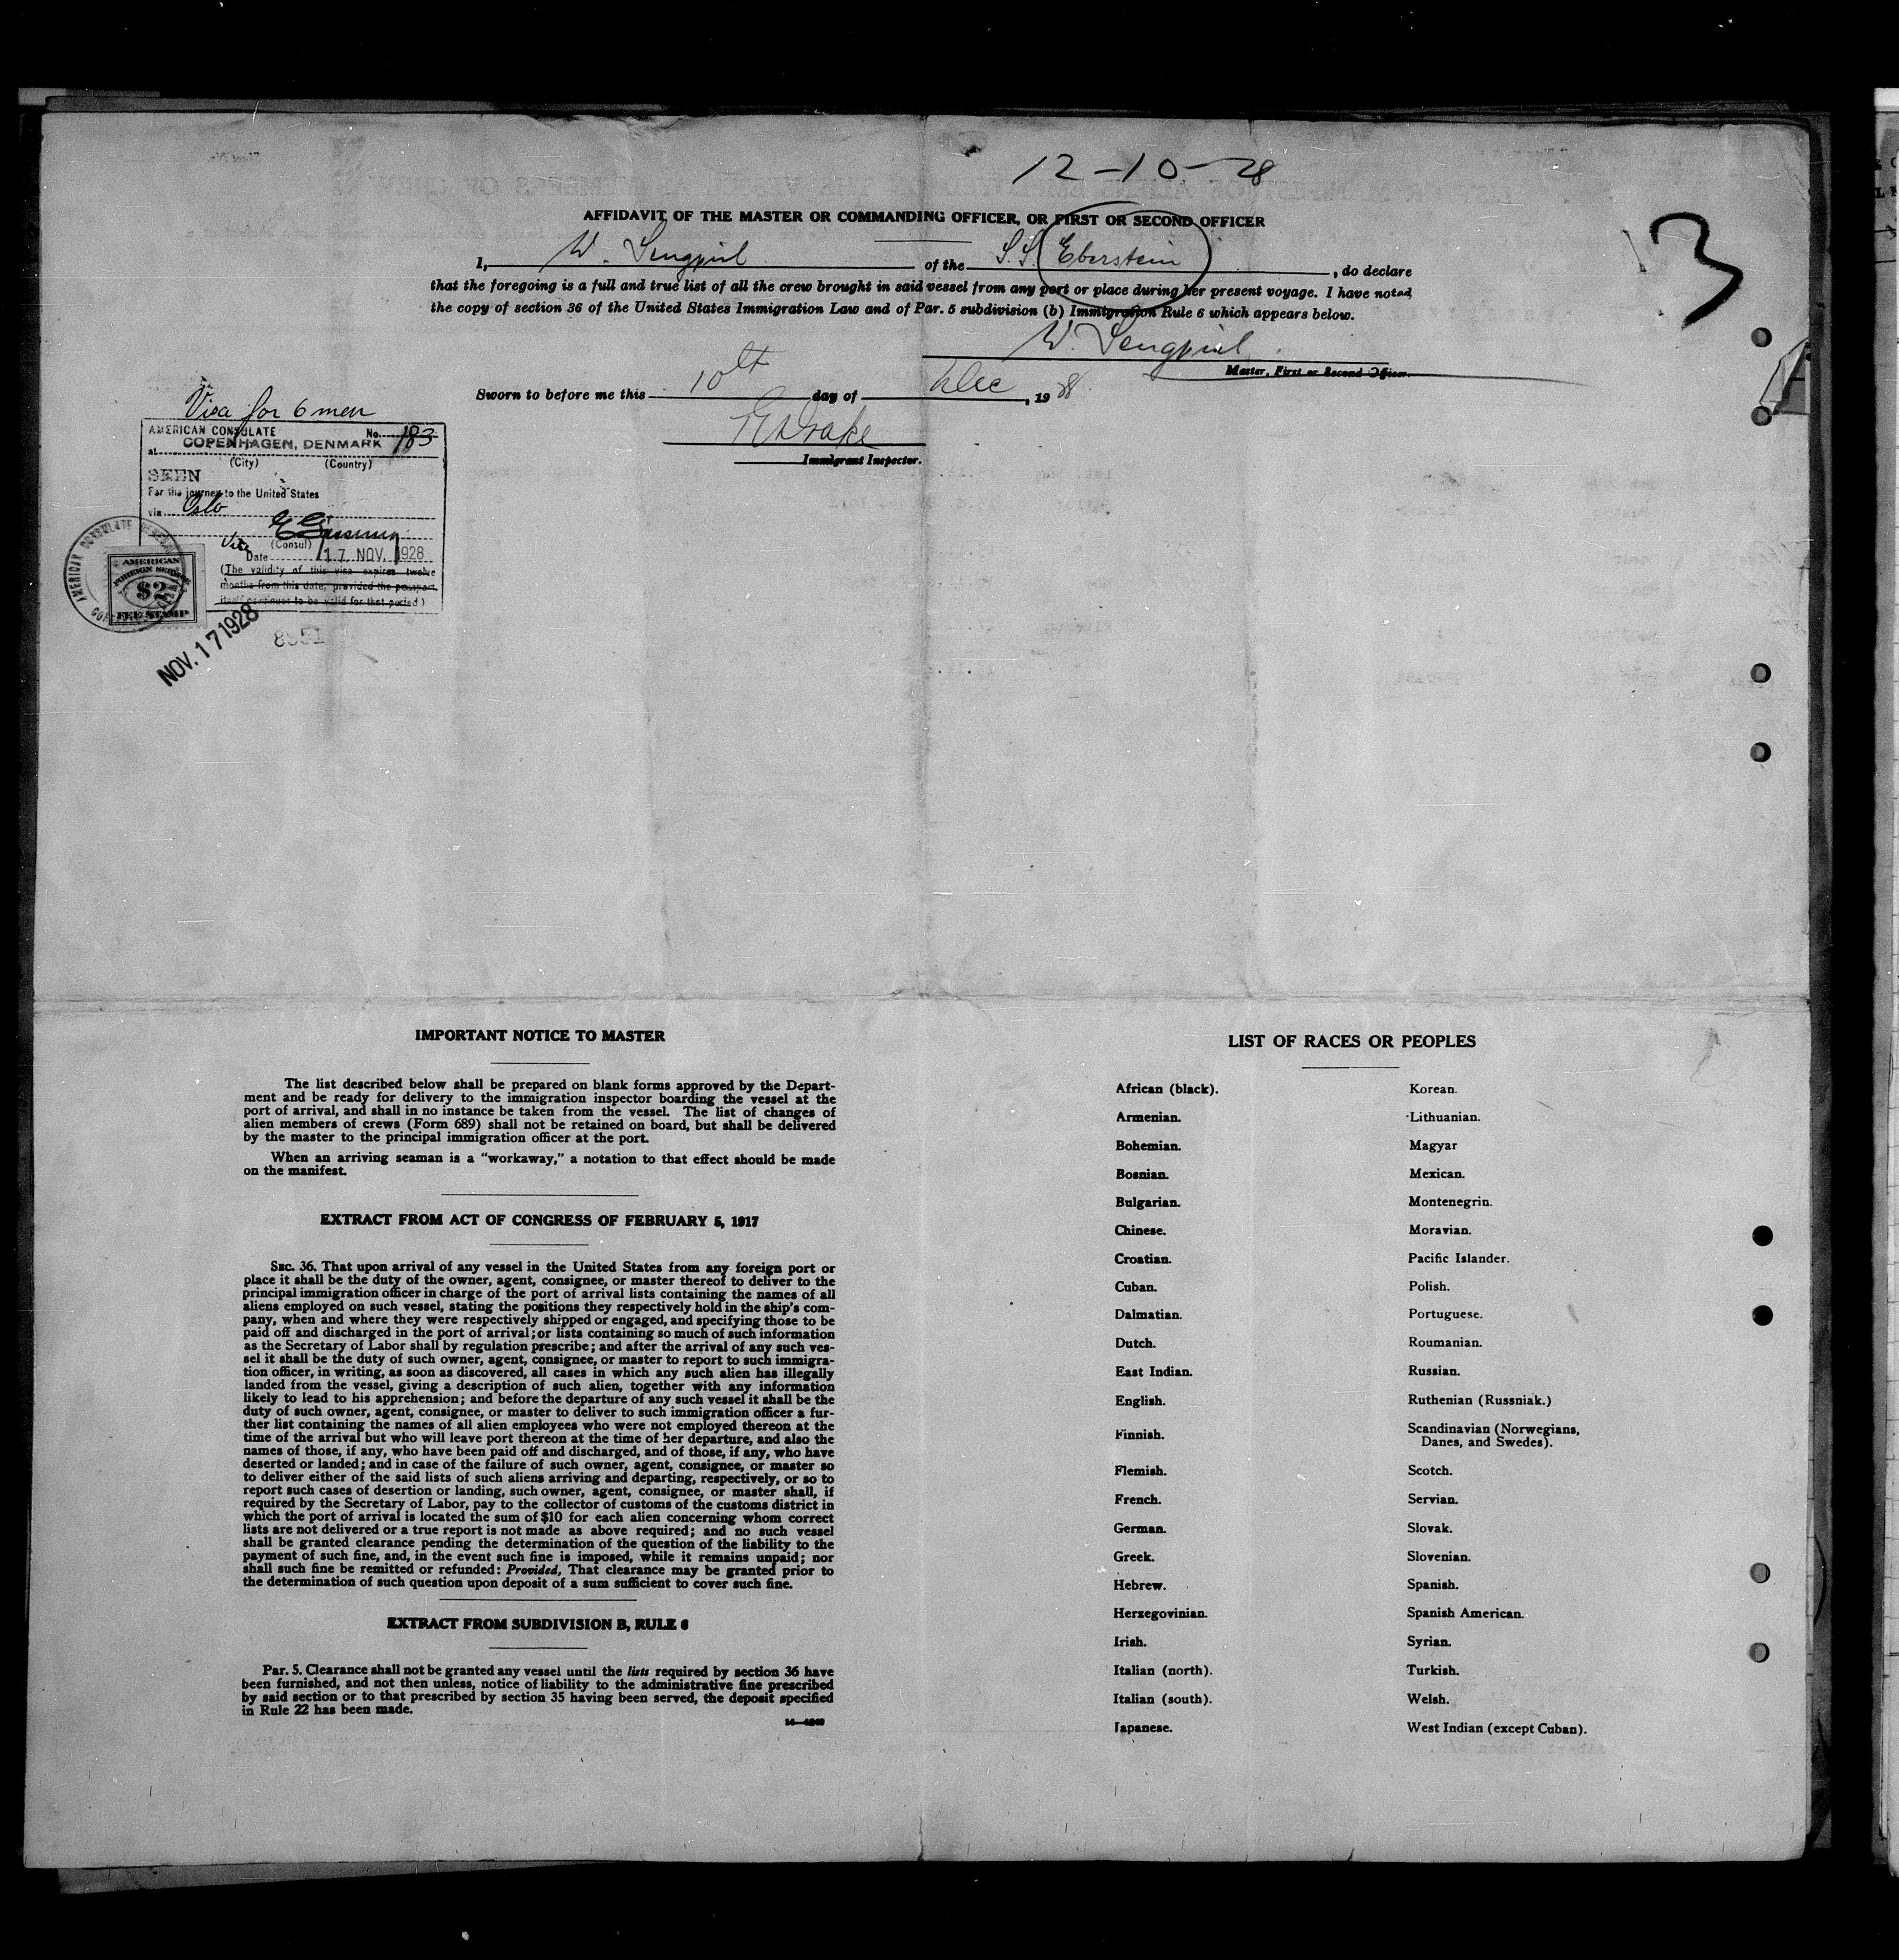 12-10-28
3
AFFIDAVIT OF THE MASTER OR COMMANDING OFFICER, OR FIRST OR SECOND OFFICER
I, W. Sengpiel of the S.S. Eberstein, do declare
that the foregoing is a full and true list of all the crew brought in said vessel from any port or place during her present voyage. I have noted
the copy of section 36 of the United States Immigration Law and of Par. 5 subdivision (b) Immigration Rule 6 which appears below.
W. Sengpiel
Master, First or Second Officer.
Sworn to before me this 10th day of Dec, 19 28.
Drake
Immigrant Inspector.
Visa for 6 men
AMERICAN CONSULATE No. 183
at COPENHAGEN, DENMARK
(City) (Country)
SEEN
For the journey to the United States
via Oslo
Vice (Consul)
Date 17. NOV. 1928
(The validity of this visa expires twelve
months from this date, provided the passport
itself continues to be valid for that period.)
AMERICAN CONSULATE GENERAL
AMERICAN
FOREIGN SERVICE
$2
FEE STAMP
NOV. 17 1928
IMPORTANT NOTICE TO MASTER
The list described below shall be prepared on blank forms approved by the Depart-
ment and be ready for delivery to the immigration inspector boarding the vessel at the
port of arrival, and shall in no instance be taken from the vessel. The list of changes of
alien members of crews (Form 689) shall not be retained on board, but shall be delivered
by the master to the principal immigration officer at the port.
When an arriving seaman is a "workaway," a notation to that effect should be made
on the manifest.
EXTRACT FROM ACT OF CONGRESS OF FEBRUARY 5, 1917
SEC. 36. That upon arrival of any vessel in the United States from any foreign port or
place it shall be the duty of the owner, agent, consignee, or master thereof to deliver to the
principal immigration officer in charge of the port of arrival lists containing the names of all
aliens employed on such vessel, stating the positions they respectively hold in the ship's com-
pany, when and where they were respectively shipped or engaged, and specifying those to be
paid off and discharged in the port of arrival; or lists containing so much of such information
as the Secretary of Labor shall by regulation prescribe; and after the arrival of any such ves-
sel it shall be the duty of such owner, agent, consignee, or master to report to such immigra-
tion officer, in writing, as soon as discovered, all cases in which any such alien has illegally
landed from the vessel, giving a description of such alien, together with any information
likely to lead to his apprehension; and before the departure of any such vessel it shall be the
duty of such owner, agent, consignee, or master to deliver to such immigration officer a fur-
ther list containing the names of all alien employees who were not employed thereon at the
time of the arrival but who will leave port thereon at the time of her departure, and also the
names of those, if any, who have been paid off and discharged, and of those, if any, who have
deserted or landed; and in case of the failure of such owner, agent, consignee, or master so
to deliver either of the said lists of such aliens arriving and departing, respectively, or so to
report such cases of desertion or landing, such owner, agent, consignee, or master shall, if
required by the Secretary of Labor, pay to the collector of customs of the customs district in
which the port of arrival is located the sum of $10 for each alien concerning whom correct
lists are not delivered or a true report is not made as above required; and no such vessel
shall be granted clearance pending the determination of the question of the liability to the
payment of such fine, and, in the event such fine is imposed, while it remains unpaid; nor
shall such fine be remitted or refunded: Provided, That clearance may be granted prior to
the determination of such question upon deposit of a sum sufficient to cover such fine.
EXTRACT FROM SUBDIVISION B, RULE 6
Par. 5. Clearance shall not be granted any vessel until the lists required by section 36 have
been furnished, and not then unless, notice of liability to the administrative fine prescribed
by said section or to that prescribed by section 35 having been served, the deposit specified
in Rule 22 has been made.
LIST OF RACES OR PEOPLES
African (black). Korean.
Armenian. Lithuanian.
Bohemian. Magyar
Bosnian. Mexican.
Bulgarian. Montenegrin.
Chinese. Moravian.
Croatian. Pacific Islander.
Cuban. Polish.
Dalmatian. Portuguese.
Dutch. Roumanian.
East Indian. Russian.
English. Ruthenian (Russniak.)
Finnish. Scandinavian (Norwegians,
Danes, and Swedes).
Flemish. Scotch.
French. Servian.
German. Slovak.
Greek. Slovenian.
Hebrew. Spanish.
Herzegovinian. Spanish American.
Irish. Syrian.
Italian (north). Turkish.
Italian (south). Welsh.
Japanese. West Indian (except Cuban).